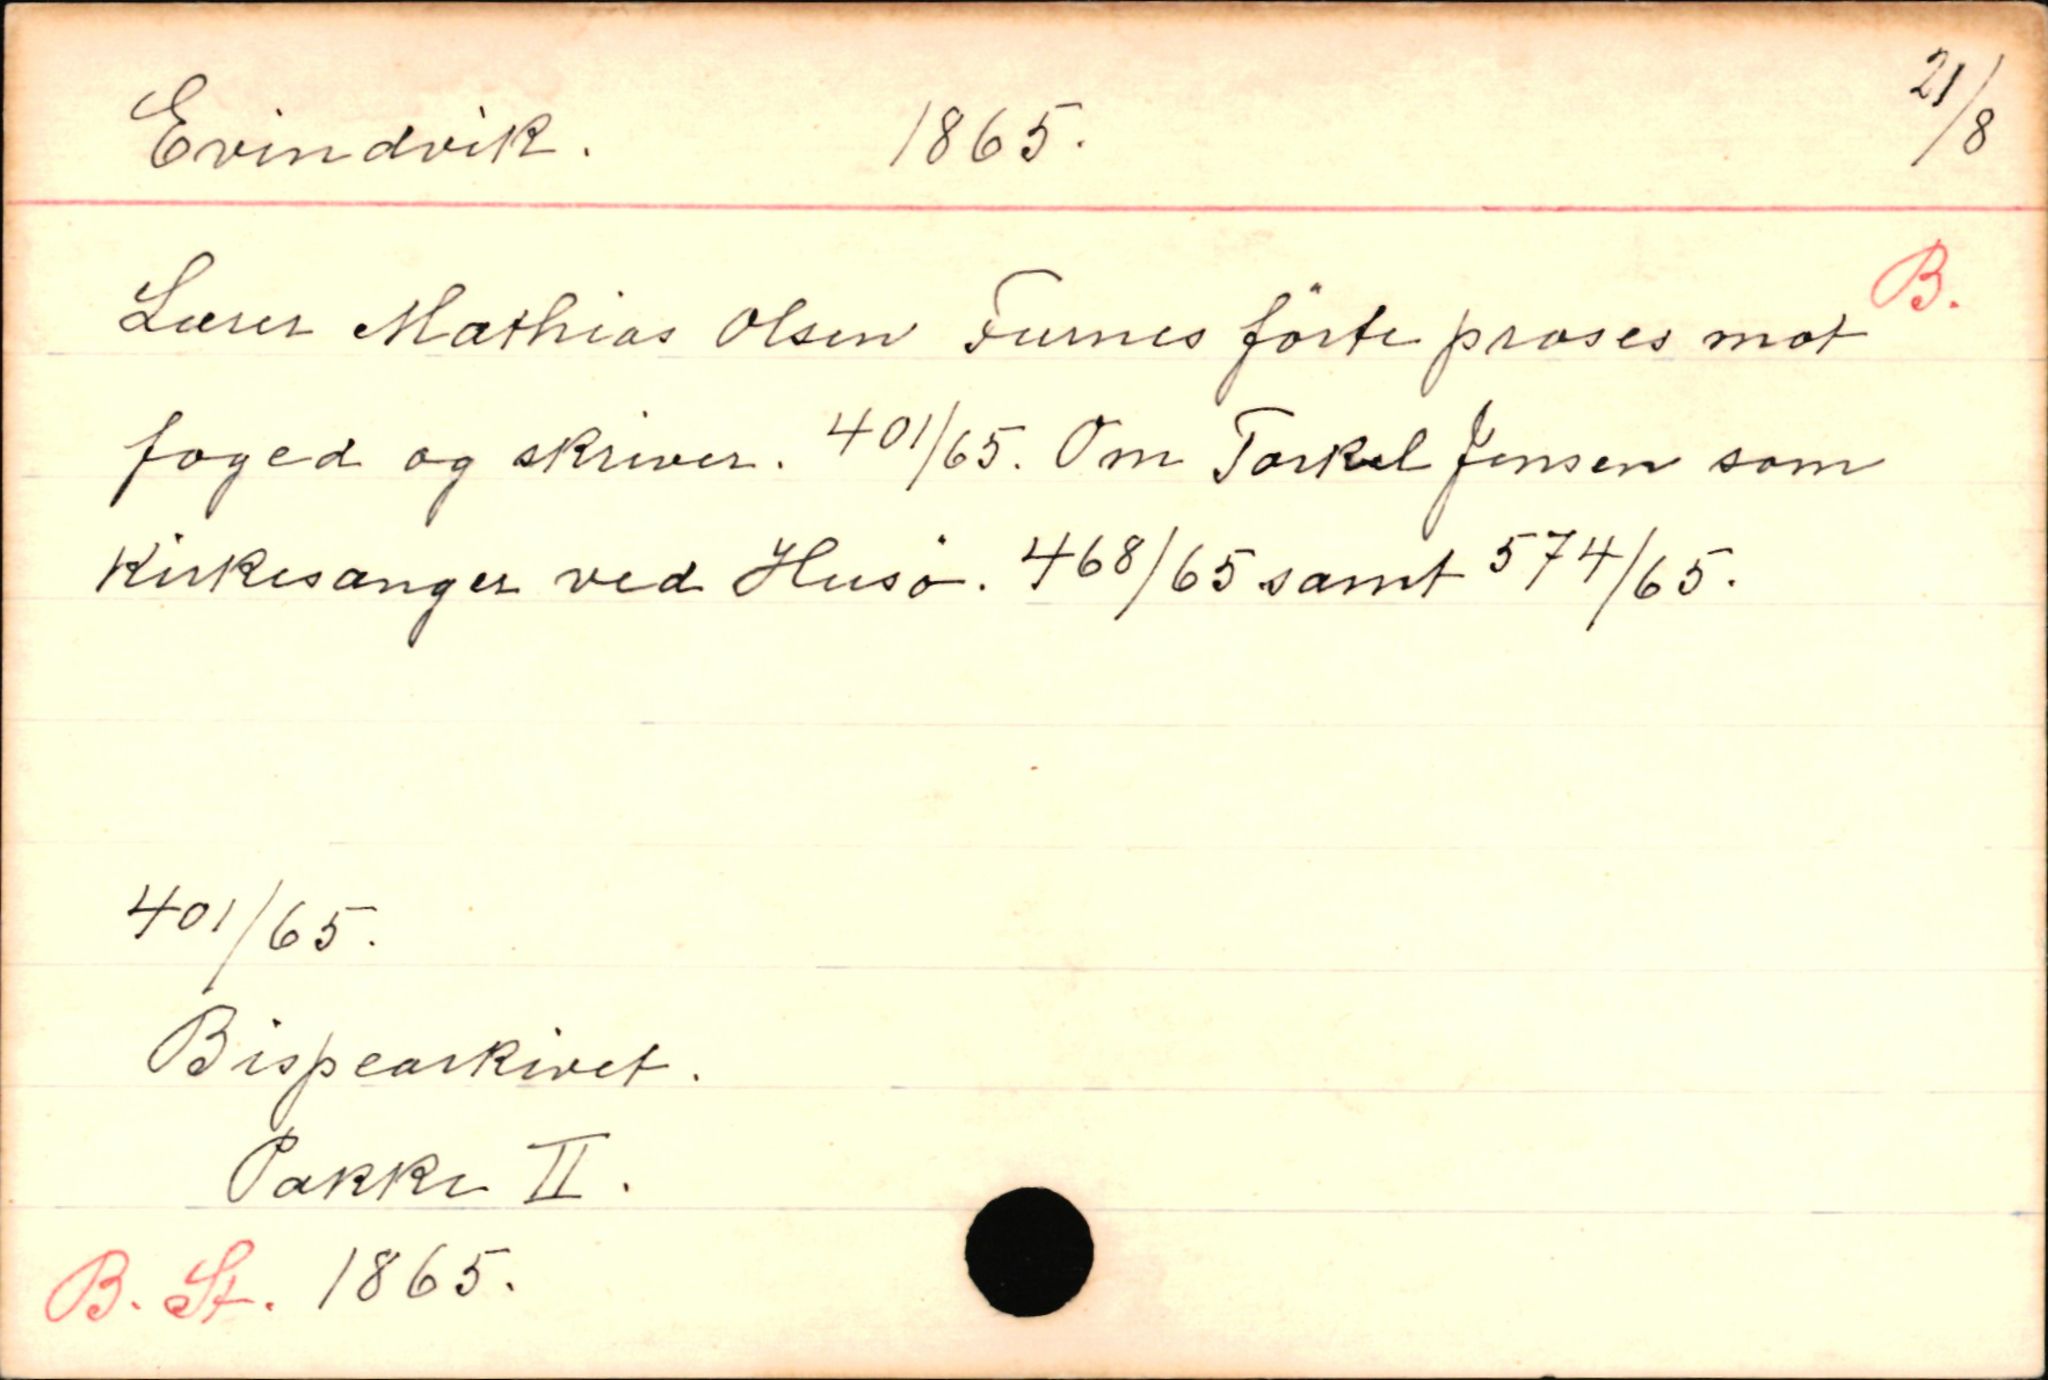 Evindvik. 1865. 21/8
B.
Lærer Mathias Olsen Furnes förte proses mot
foged og skriver. 401/65. Om Torkel Jensen som
Kirkesanger ved Husö. 468/65 samt 574/65.
401/65.
Bispearkivet.
Pakke II.
B. St. 1865.